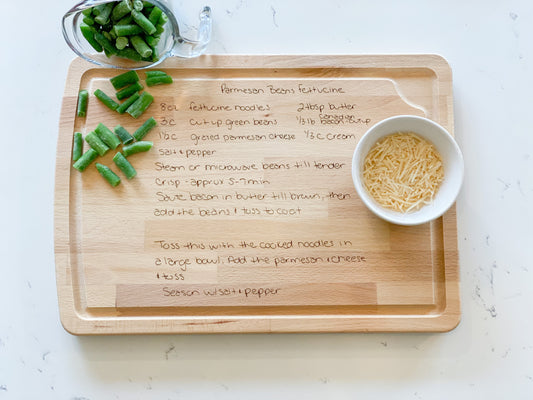 Parmesan Beans Fettucine
8oz fettucine noodles 2tbsp butter
3c cut up green beans 1/3 lb Canadian bacon cut up
1/2c grated parmesan cheese 1/3c cream
salt & pepper
Steam or microwave beans till tender
crisp - approx 5-7min
Saute bacon in butter till brown, then
add the beans & toss to coat
Toss this with the cooked noodles in
a large bowl. Add the parmesan & cheese
& toss
Season w/salt & pepper